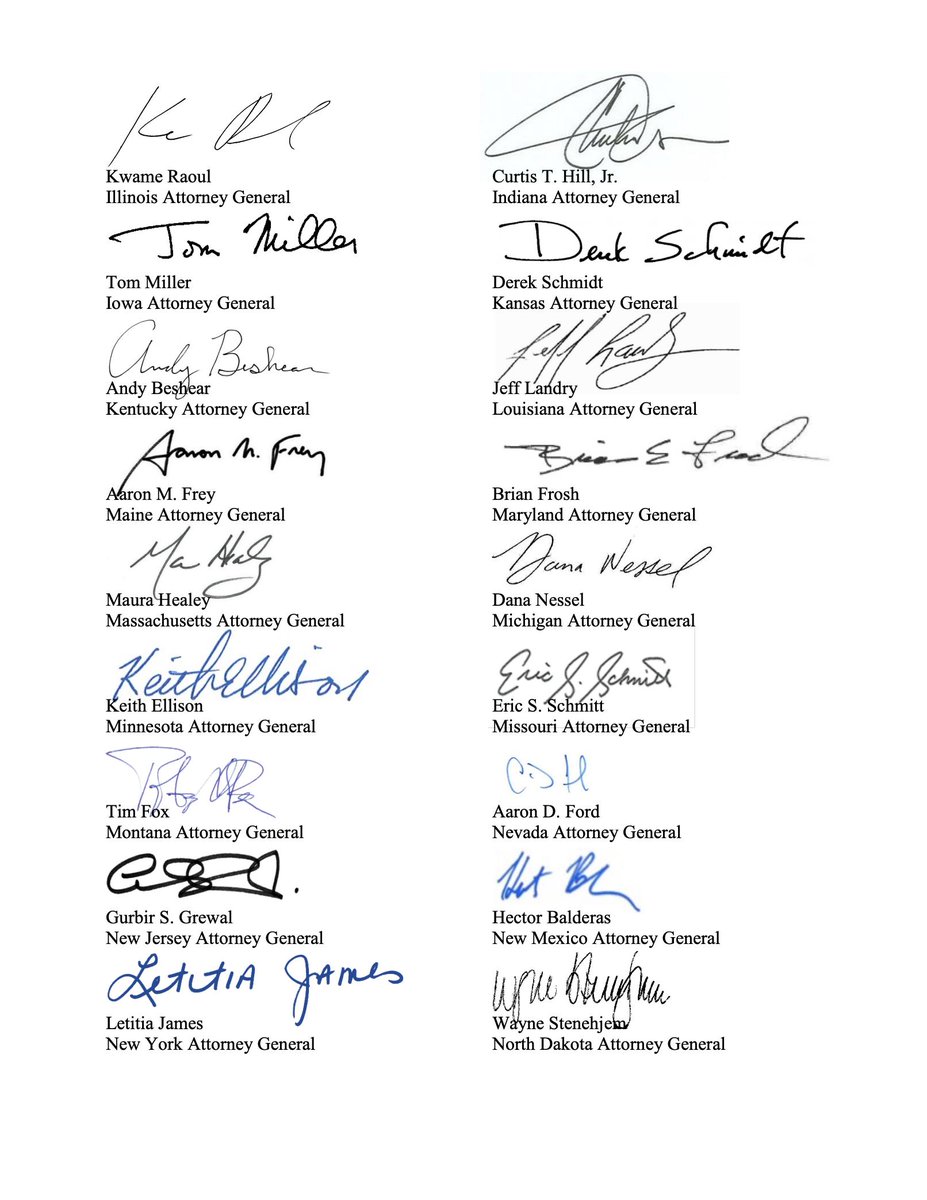 Kwame Raoul
Illinois Attorney General
Curtis T. Hill, Jr.
Indiana Attorney General
Tom Miller
Tom Miller
Iowa Attorney General
Derek Schmidt
Derek Schmidt
Kansas Attorney General
Andy Beshear
Andy Beshear
Kentucky Attorney General
Jeff Landry
Louisiana Attorney General
Aaron M. Frey
Aaron M. Frey
Maine Attorney General
Brian E Frosh
Brian Frosh
Maryland Attorney General
Maura Healey
Massachusetts Attorney General
Dana Nessel
Dana Nessel
Michigan Attorney General
Keith Ellison
Keith Ellison
Minnesota Attorney General
Eric S. Schmitt
Eric S. Schmitt
Missouri Attorney General
Tim Fox
Montana Attorney General
Aaron D. Ford
Nevada Attorney General
Gurbir S. Grewal
New Jersey Attorney General
Hector Balderas
New Mexico Attorney General
Letitia James
Letitia James
New York Attorney General
Wayne Stenehjem
North Dakota Attorney General